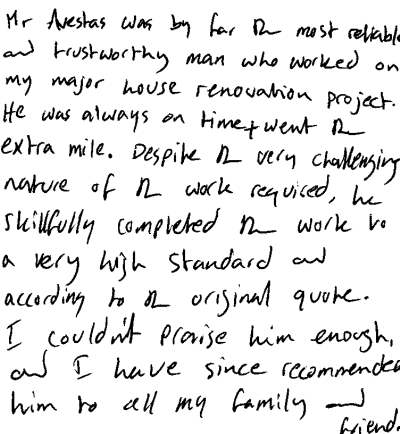 Mr Avestas was by far the most reliable
and trustworthy man who worked on
my major house renovation project.
He was always on time + went the
extra mile. Despite the very challenging
nature of the work required, he
skillfully completed the work to
a very high standard and
according to the original quote.
I couldn't praise him enough,
and I have since recommended
him to all my family and
friend.